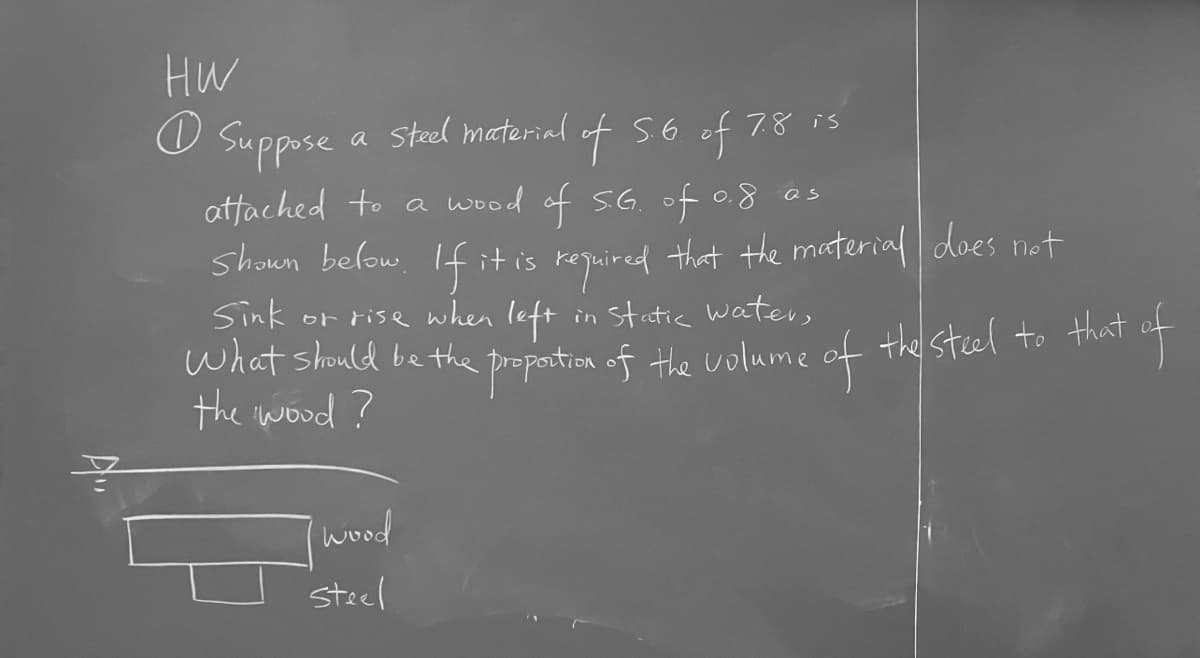 HW
① Suppose a steel material of S.G of 7.8 is
attached to a wood of S.G. of 0.8 as
shown below. If it is required that the material does not
sink or rise when left in static water,
what should be the proportion of the volume of the steel to that of
the wood?
wood
steel